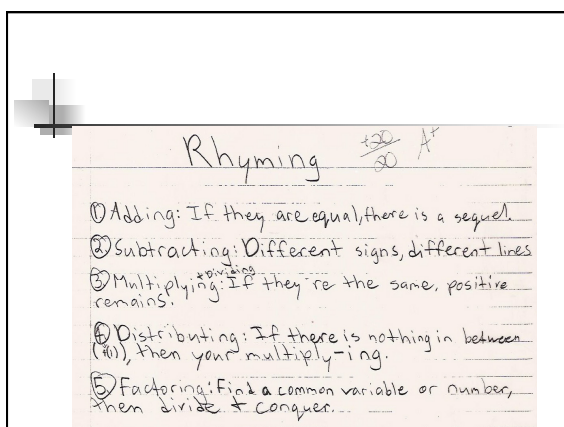 Rhyming +20/20 A+
① Adding: If they are equal, there is a sequel.
② Subtracting: Different signs, different lines
+ Dividing
③ Multiplying: If they're the same, positive
remains.
④ Distributing: If there is nothing in between
(#()), then your multiply-ing.
⑤ Factoring: Find a common variable or number,
then divide + conquer.